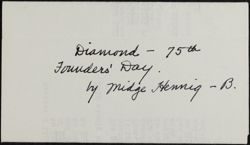 Diamond - 75th
Founders' Day.
by Midge Hennig - B.